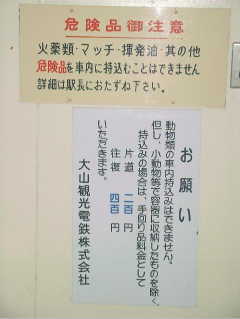 危険品御注意
火薬類・マッチ・揮発油・其の他
危険品を車内に持込むことはできません
詳細は駅長におたずね下さい。
お願い
動物類の車内持込みはできません。
但し、小動物等で容器に収納したものを除く。
持込みの場合は、手回り品料金として
片道 二百 円
往復 四百 円
いただきます。
大山観光電鉄株式会社